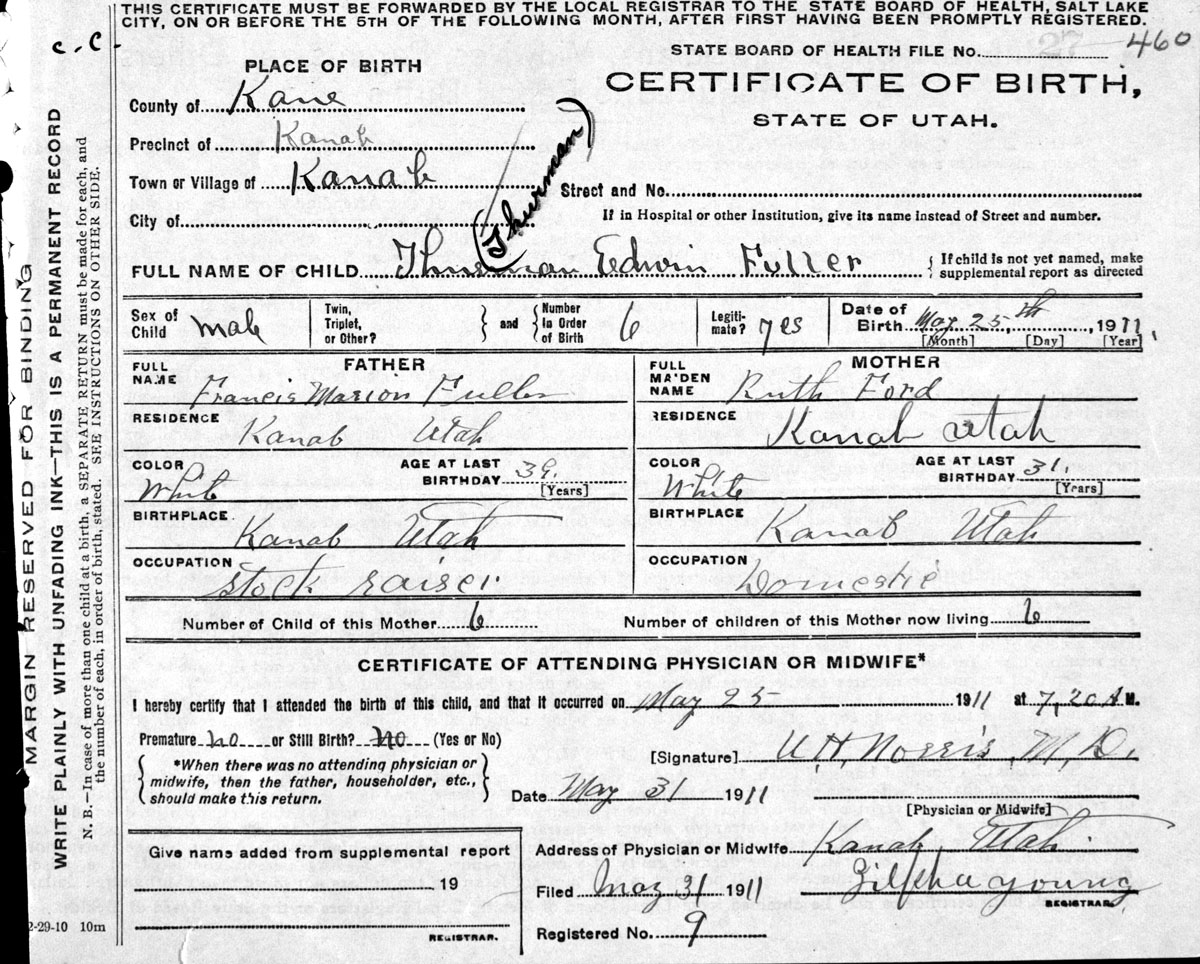 THIS CERTIFICATE MUST BE FORWARDED BY THE LOCAL REGISTRAR TO THE STATE BOARD OF HEALTH, SALT LAKE
CITY, ON OR BEFORE THE 5TH OF THE FOLLOWING MONTH, AFTER FIRST HAVING BEEN PROMPTLY REGISTERED.
c.c.
STATE BOARD OF HEALTH FILE No. 27 460
PLACE OF BIRTH
CERTIFICATE OF BIRTH,
STATE OF UTAH.
County of Kane
Precinct of Kanab
Town or Village of Kanab
Street and No.
City of
If in Hospital or other Institution, give its name instead of Street and number.
(Thurman)
FULL NAME OF CHILD Thurman Edwin Fuller
{ If child is not yet named, make
supplemental report as directed
Sex of Child male
Twin, Triplet, or Other?
and
Number in Order of Birth 6
Legiti-mate? yes
Date of Birth May 25, th, 1911,
[Month] [Day] [Year]
FATHER
FULL NAME Francis Marion Fuller
RESIDENCE Kanab Utah
COLOR White
AGE AT LAST BIRTHDAY 39.
[Years]
BIRTHPLACE Kanab Utah
OCCUPATION stock raiser
MOTHER
FULL MAIDEN NAME Ruth Ford
RESIDENCE Kanab Utah
COLOR White
AGE AT LAST BIRTHDAY 31.
[Years]
BIRTHPLACE Kanab Utah
OCCUPATION Domestic
Number of Child of this Mother 6
Number of children of this Mother now living 6
CERTIFICATE OF ATTENDING PHYSICIAN OR MIDWIFE*
I hereby certify that I attended the birth of this child, and that it occurred on May 25 1911 at 7,20 A M.
Premature no or Still Birth? no (Yes or No)
*When there was no attending physician or
midwife, then the father, householder, etc.,
should make this return.
[Signature] U.H. Norris, M.D.
Date May 31 1911
[Physician or Midwife]
Give name added from supplemental report
19
REGISTRAR.
Address of Physician or Midwife Kanab, Utah.
Filed May 31 1911 Zilpha Young
REGISTRAR.
Registered No. 9
2-29-10 10m
MARGIN RESERVED FOR BINDING
WRITE PLAINLY WITH UNFADING INK—THIS IS A PERMANENT RECORD
N. B.—In case of more than one child at a birth, a SEPARATE RETURN must be made for each, and
the number of each, in order of birth, stated. SEE INSTRUCTIONS ON OTHER SIDE.